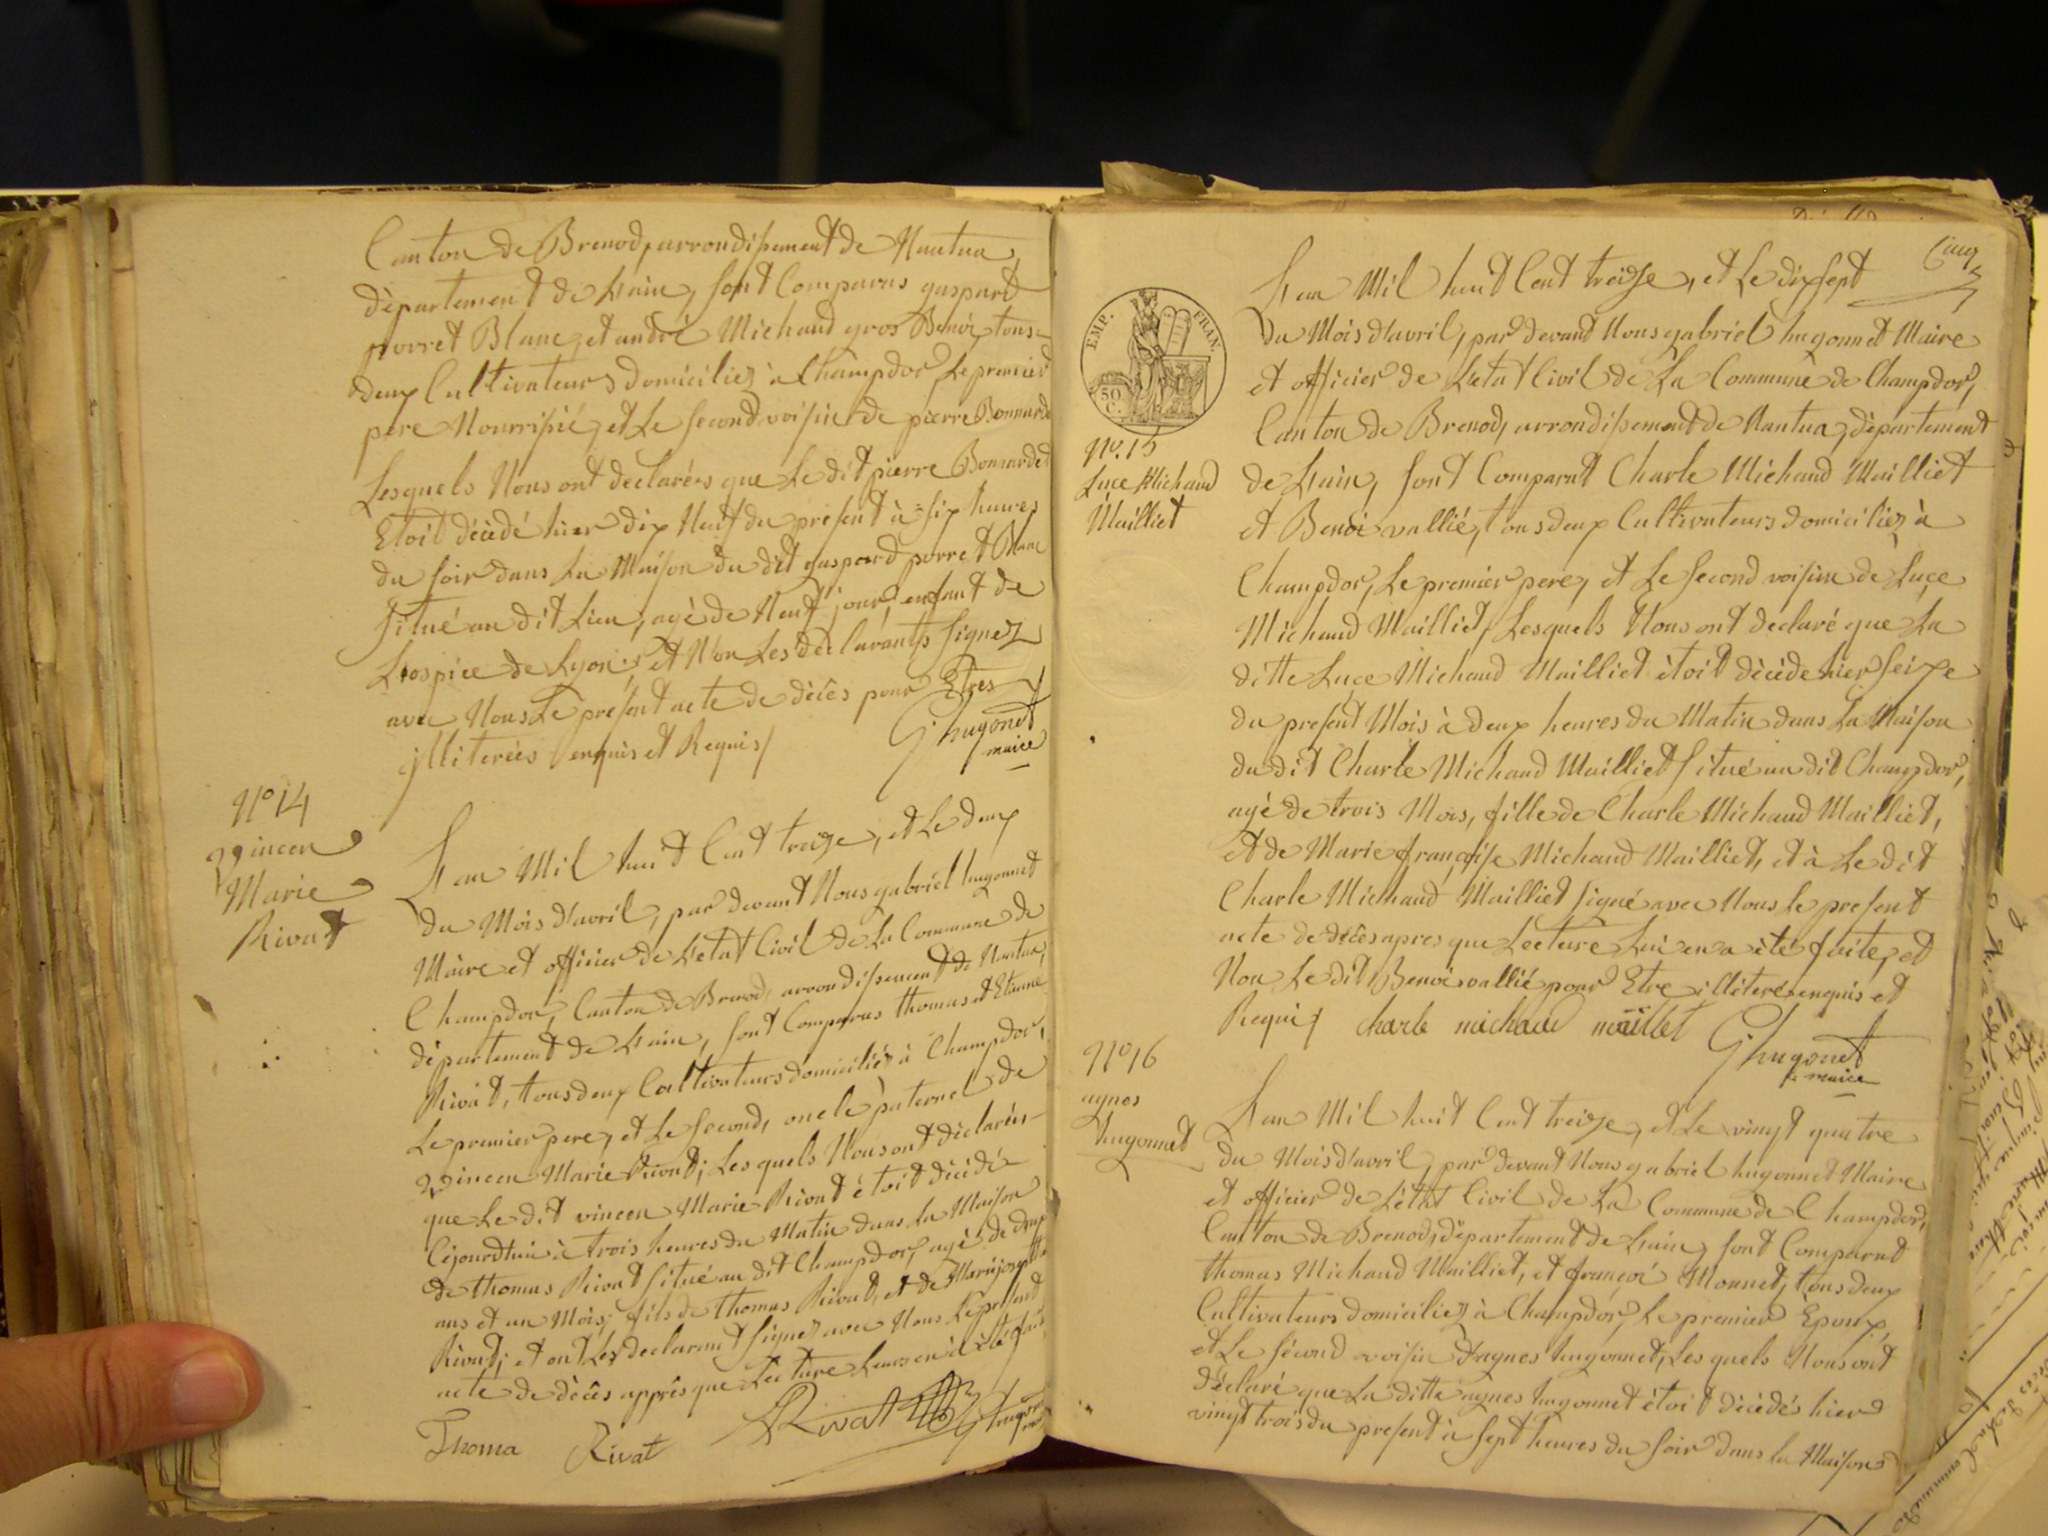 Canton de Brenod, arrondissement de Nantua,
département de L'ain, sont Comparus gaspard
porret Blanc, et andré Michaud gros Benoi, tous
deux Cultivateurs domiciliez à Champdor, Le premier
pere Nourrisié, et Le second voisin de pierre Bonnardet
Lesquels Nous ont declarérs que Le dit pierre Bonnardet
Etoit décédé hier dix Neuf du present à six heures
du soir dans La Maison du dit gaspard porret Blanc
situé au dit Lieu, agé de Neuf jour, enfant de
Lospice de Lyon, et Non Les déclarants signez
avec Nous Le present acte de décês pour Etres
illiterées enquis et Requis/
G hugonet
maire
N° 14
vincen
Marie
Rivat
L'an Mil huit Cent treize, et Le deux
du Mois d'avril, par devant Nous gabriel hugonnet
Maire et officier de L'etat Civil de La Commune de
Champdor, Canton de Brenod, arrondissement de Nantua,
département de L'ain, sont Comparus thomas et Etienne
Rivat, tous deux Cultivateurs domiciliés à Champdor,
Le premier pere, et Le second, oncle paternel de
vincen Marie Rivat, Lesquels Nous ont déclarérs
que Le dit vincen Marie Rivat étoit décédé
Cejourdhui à trois heures du Matin dans La Maison
de thomas Rivat situé au dit Champdor, agé de deux
ans et un Mois, fils de thomas Rivat, et de Marie josephte
Rivat, et ont Les declarant signez avec Nous Le present
acte de décês apprês que Lecture Leurs en à été faite
Thoma Rivat Rivat G hugonet
Cinq
EMP. FRAN.
50 C.
N°. 15
Luce Michaud
Mailliet
L'an Mil huit Cent treize, et Le dix sept
du Mois d'avril, par devant Nous gabriel hugonnet Maire
et officier de L'etat Civil de La Commune de Champdor,
Canton de Brenod, arrondissement de Nantua, département
de L'ain, sont Comparut Charle Michaud Mailliet
et Benoi vallié, tous deux Cultivateurs domiciliez à
Champdor, Le premier pere, et Le second voisin de Luce
Michaud Mailliet, Lesquels Nous ont declaré que La
ditte Luce Michaud Mailliet étoit décéde hier seize
du present Mois à deux heures du Matin dans La Maison
du dit Charle Michaud Mailliet situé au dit Champdor,
agé de trois Mois, fille de Charle Michaud Mailliet,
et de Marie françoise Michaud Mailliet, et à Le dit
Charle Michaud Mailliet signé avec Nous Le present
acte de décês apres que Lecture Lui en a été faite, et
Non Le dit Benoi vallié pour Etre illiteré enquis et
Requis/ charle michaud maillet
G hugonet
maire
N° 16
agnes
hugonnet
L'an Mil huit Cent treize, et Le vingt quatre
du Mois d'avril, par devant Nous gabriel hugonnet Maire
et officier de L'état Civil de La Commune de Champdor,
Canton de Brenod, département de L'ain, sont Comparut
thomas Michaud Mailliet, et françoi Monnet, tous deux
Cultivateurs domiciliez à Champdor, Le premier Epoux,
et Le sécond voisin d'agnes hugonnet, Lesquels Nous ont
déclaré que La ditte agnes hugonnet étoit décédés hier
vingt trois du present à sept heures du soir dans La Maison